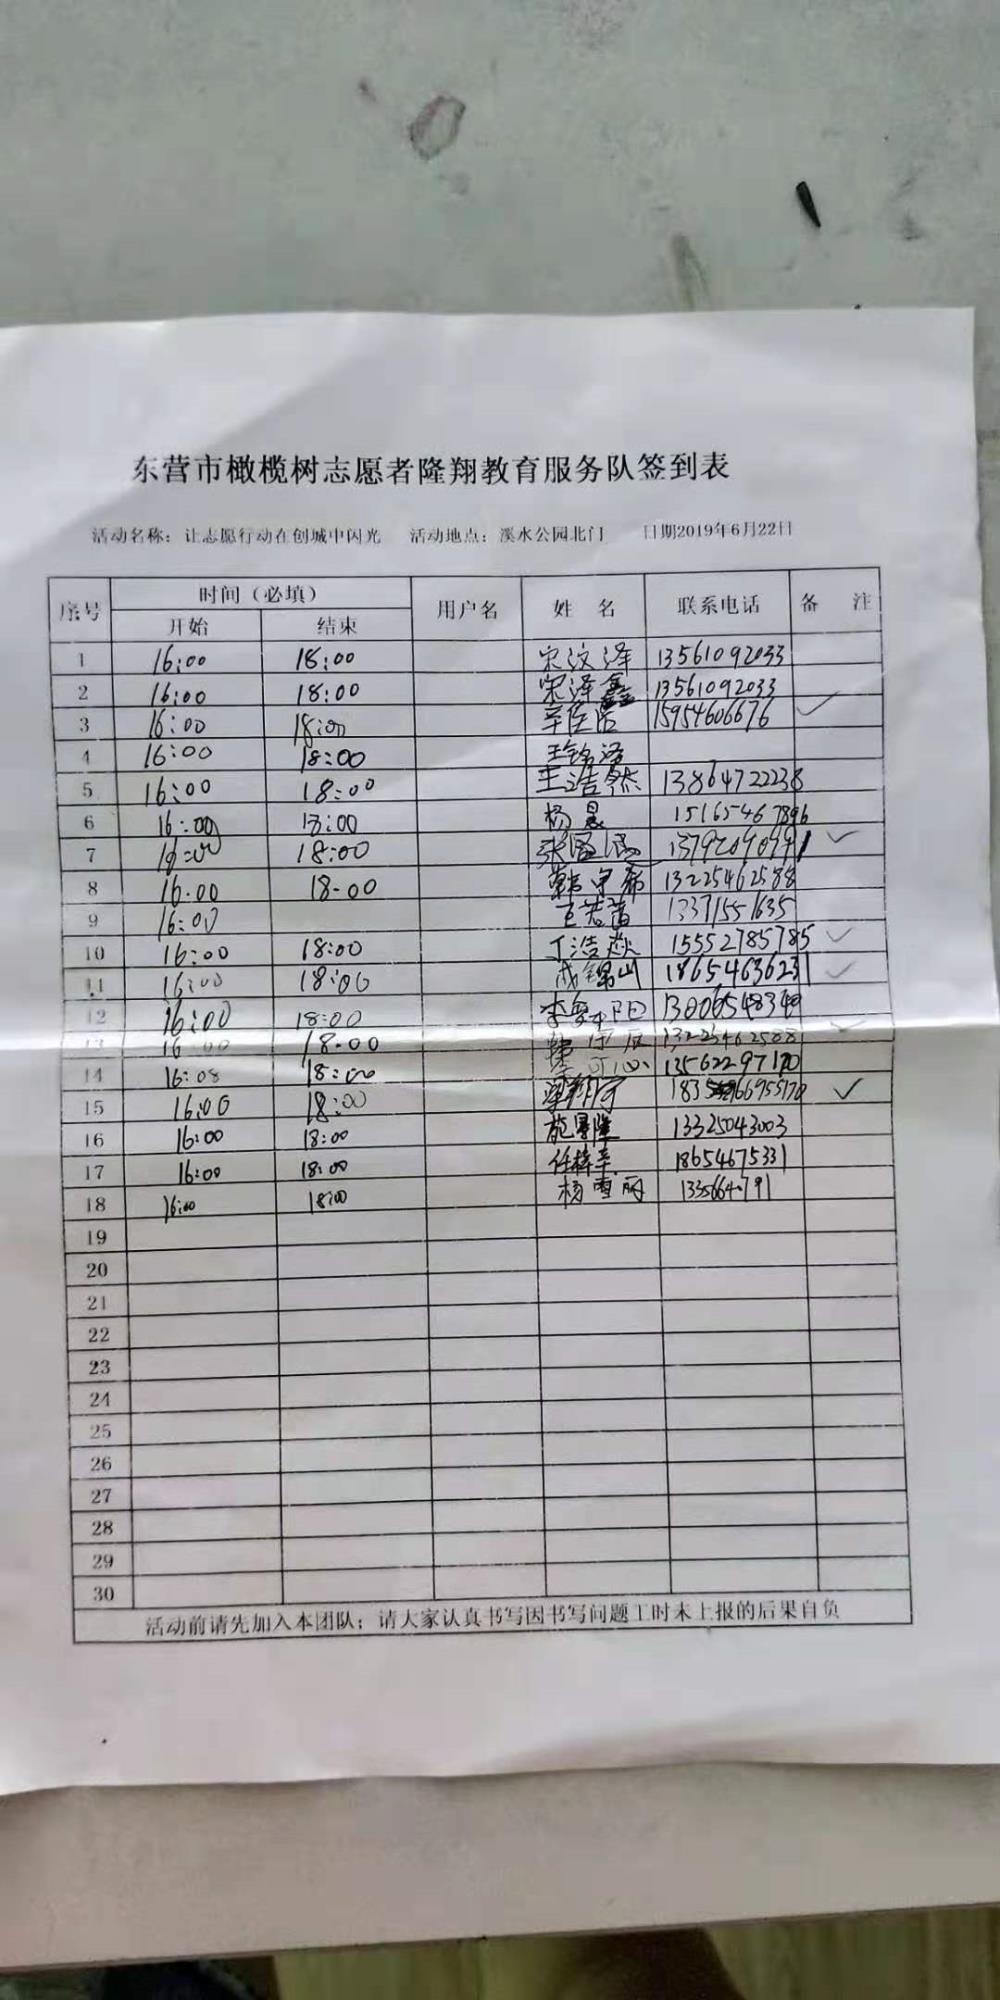 东营市橄榄树志愿者隆翔教育服务队签到表
活动名称：让志愿行动在创城中闪光 活动地点：溪水公园北门 日期2019年6月22日
序号 时间（必填） 用户名 姓 名 联系电话 备 注
开始 结束
1 16:00 18:00 宋汶泽 13561092033
2 16:00 18:00 宋泽鑫 13561092033
3 16:00 18:00 15954606676 ✓
4 16:00 18:00 王锦泽
5 16:00 18:00 王浩然 13864722238
6 16:00 18:00 杨晨 15165467896
7 18:00 ✓
8 16:00 18:00 13225462588
9 16:00 王若茜 13371551635
10 16:00 18:00 丁浩焱 15552785785 ✓
11 16:00 18:00 成锦山 18654636231 ✓
12 16:00 18:00 13006548349
13 16:00 18:00
14 16:08 18:00 13562297170
15 16:00 18:00 ✓
16 16:00 18:00 13325043003
17 16:00 18:00 任梓辛 18654675331
18 16:00 18:00 杨雪丽
19
20
21
22
23
24
25
26
27
28
29
30
活动前请先加入本团队；请大家认真书写因书写问题工时未上报的后果自负